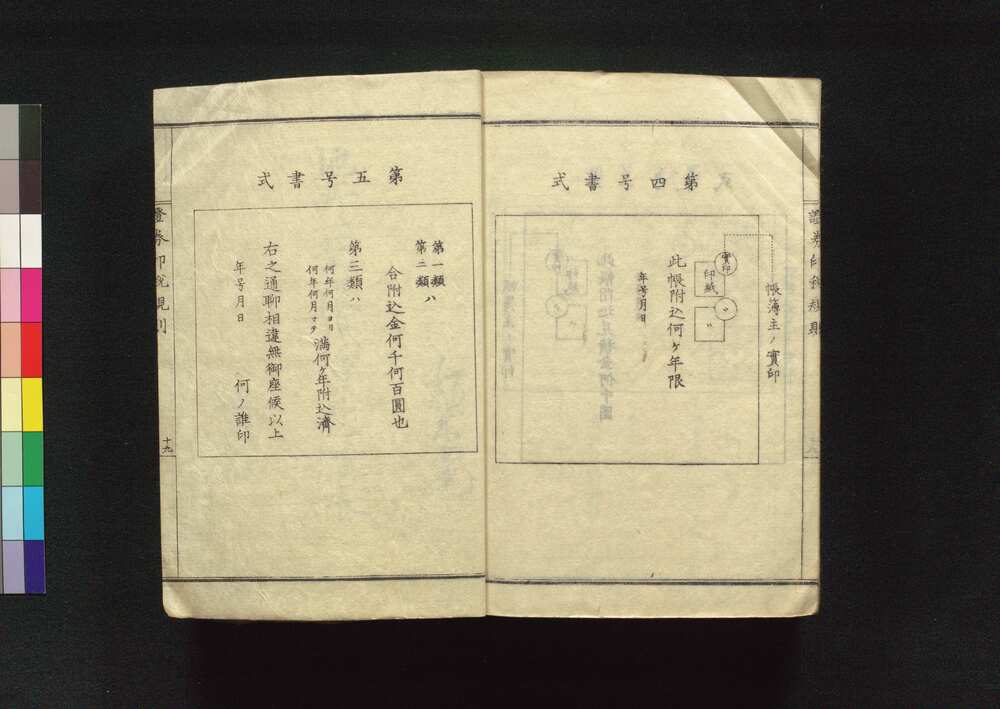 第四号書式
帳簿主ノ實印
實印
印紙
〃
〃
此帳附込何ケ年限
年号月日
證券印税規則
第五号書式
第一類
第二類ハ
合附込金何千何百圓也
第三類ハ
何年何月ヨリ
何年何月マテ
満何ケ年附込濟
右之通聊相違無御座候以上
年号月日
何ノ誰印
證券印税規則
十九